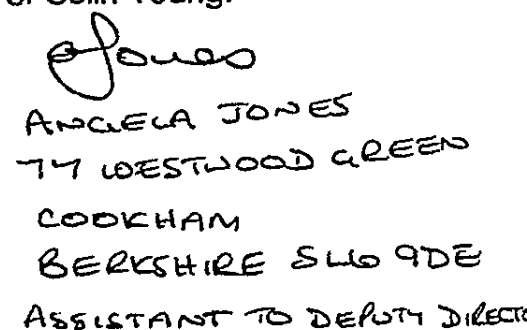 of Colin Young.
AJones
ANGELA JONES
77 WESTWOOD GREEN
COOKHAM
BERKSHIRE SL6 9DE
ASSISTANT TO DEPUTY DIRECTO